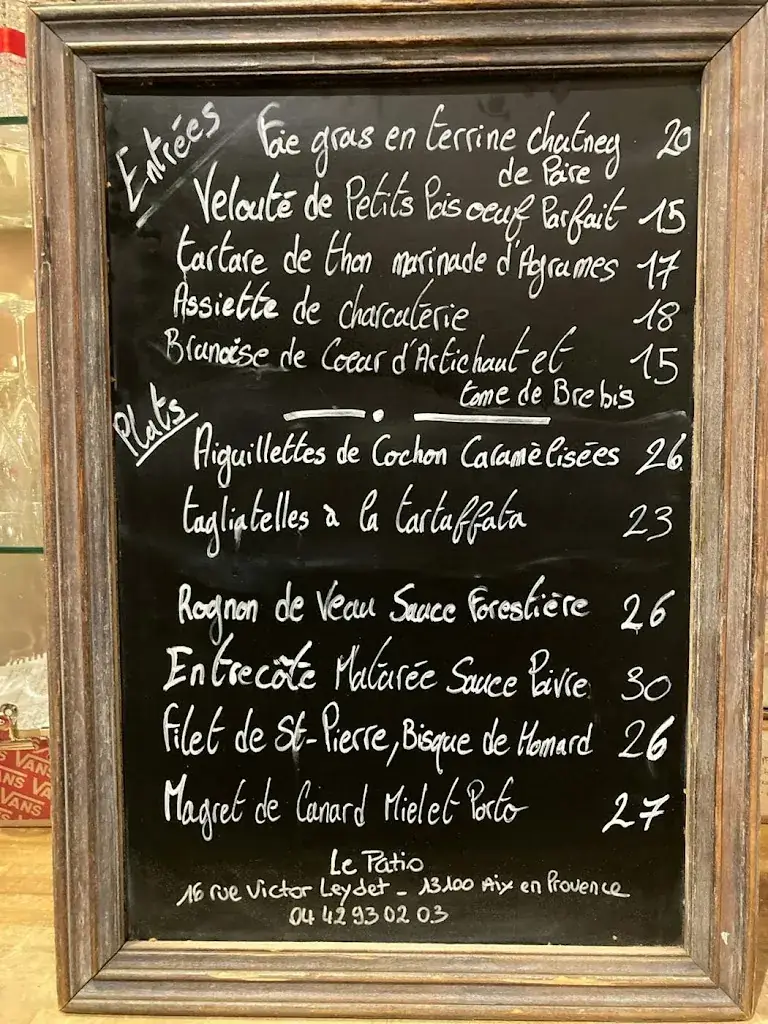 Entrées
Foie gras en terrine chutney 20
de Poire
Velouté de Petits Pois oeuf Parfait 15
tartare de thon marinade d'Agrumes 17
Assiette de charcuterie 18
Brunoise de Coeur d'Artichaut et 15
tome de Brebis
Plats
Aiguillettes de Cochon Caramèlisées 26
tagliatelles à la tartuffata 23
Rognon de Veau Sauce Forestière 26
Entrecôte Maturée Sauce Poivre 30
Filet de St-Pierre, Bisque de Homard 26
Magret de Canard Miel et Porto 27
Le Patio
16 rue Victor Leydet - 13100 Aix en Provence
04 42 93 02 03
VANS
VANS
VANS